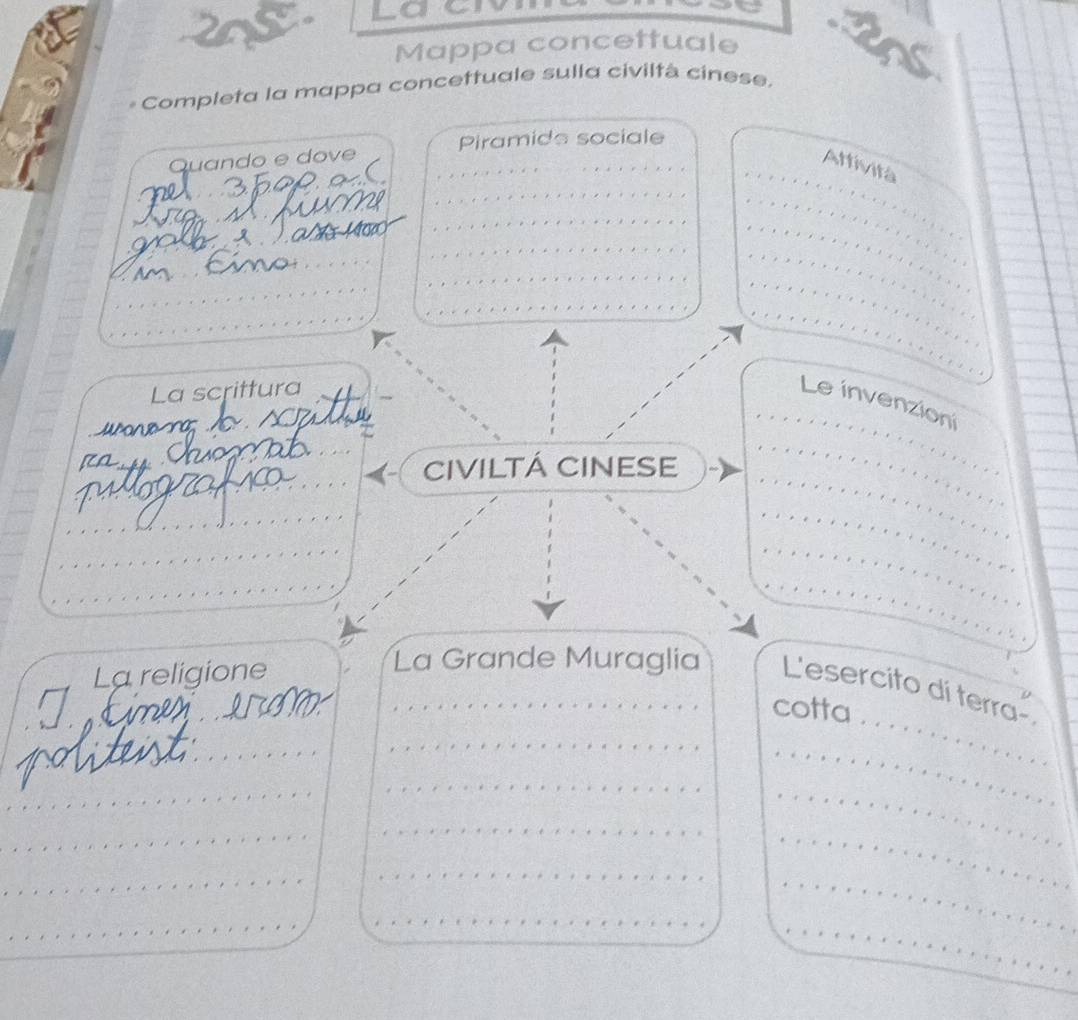 Mappa concettuale
Completa la mappa concettuale sulla civiltá cinese.
Quando e dove
nel 3500 a.C
il fiume
giallo e
in Cina
Piramide sociale
Attivitá
La scrittura
la scrittu
ra chiamata
pittografica
CIVILTÁ CINESE
Le invenzioni
La religione
I cinesi erano
politeisti
La Grande Muraglia
L'esercito di terra-
cotta